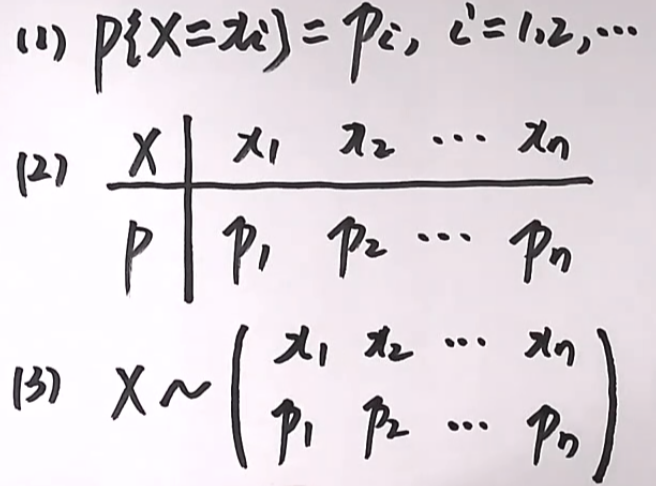 (1) P{X=xi)=pi, i=1,2,…
(2) X | x1 x2 … xn
P | p1 p2 … pn
(3) X ~ ( x1 x2 … xn
p1 p2 … pn )